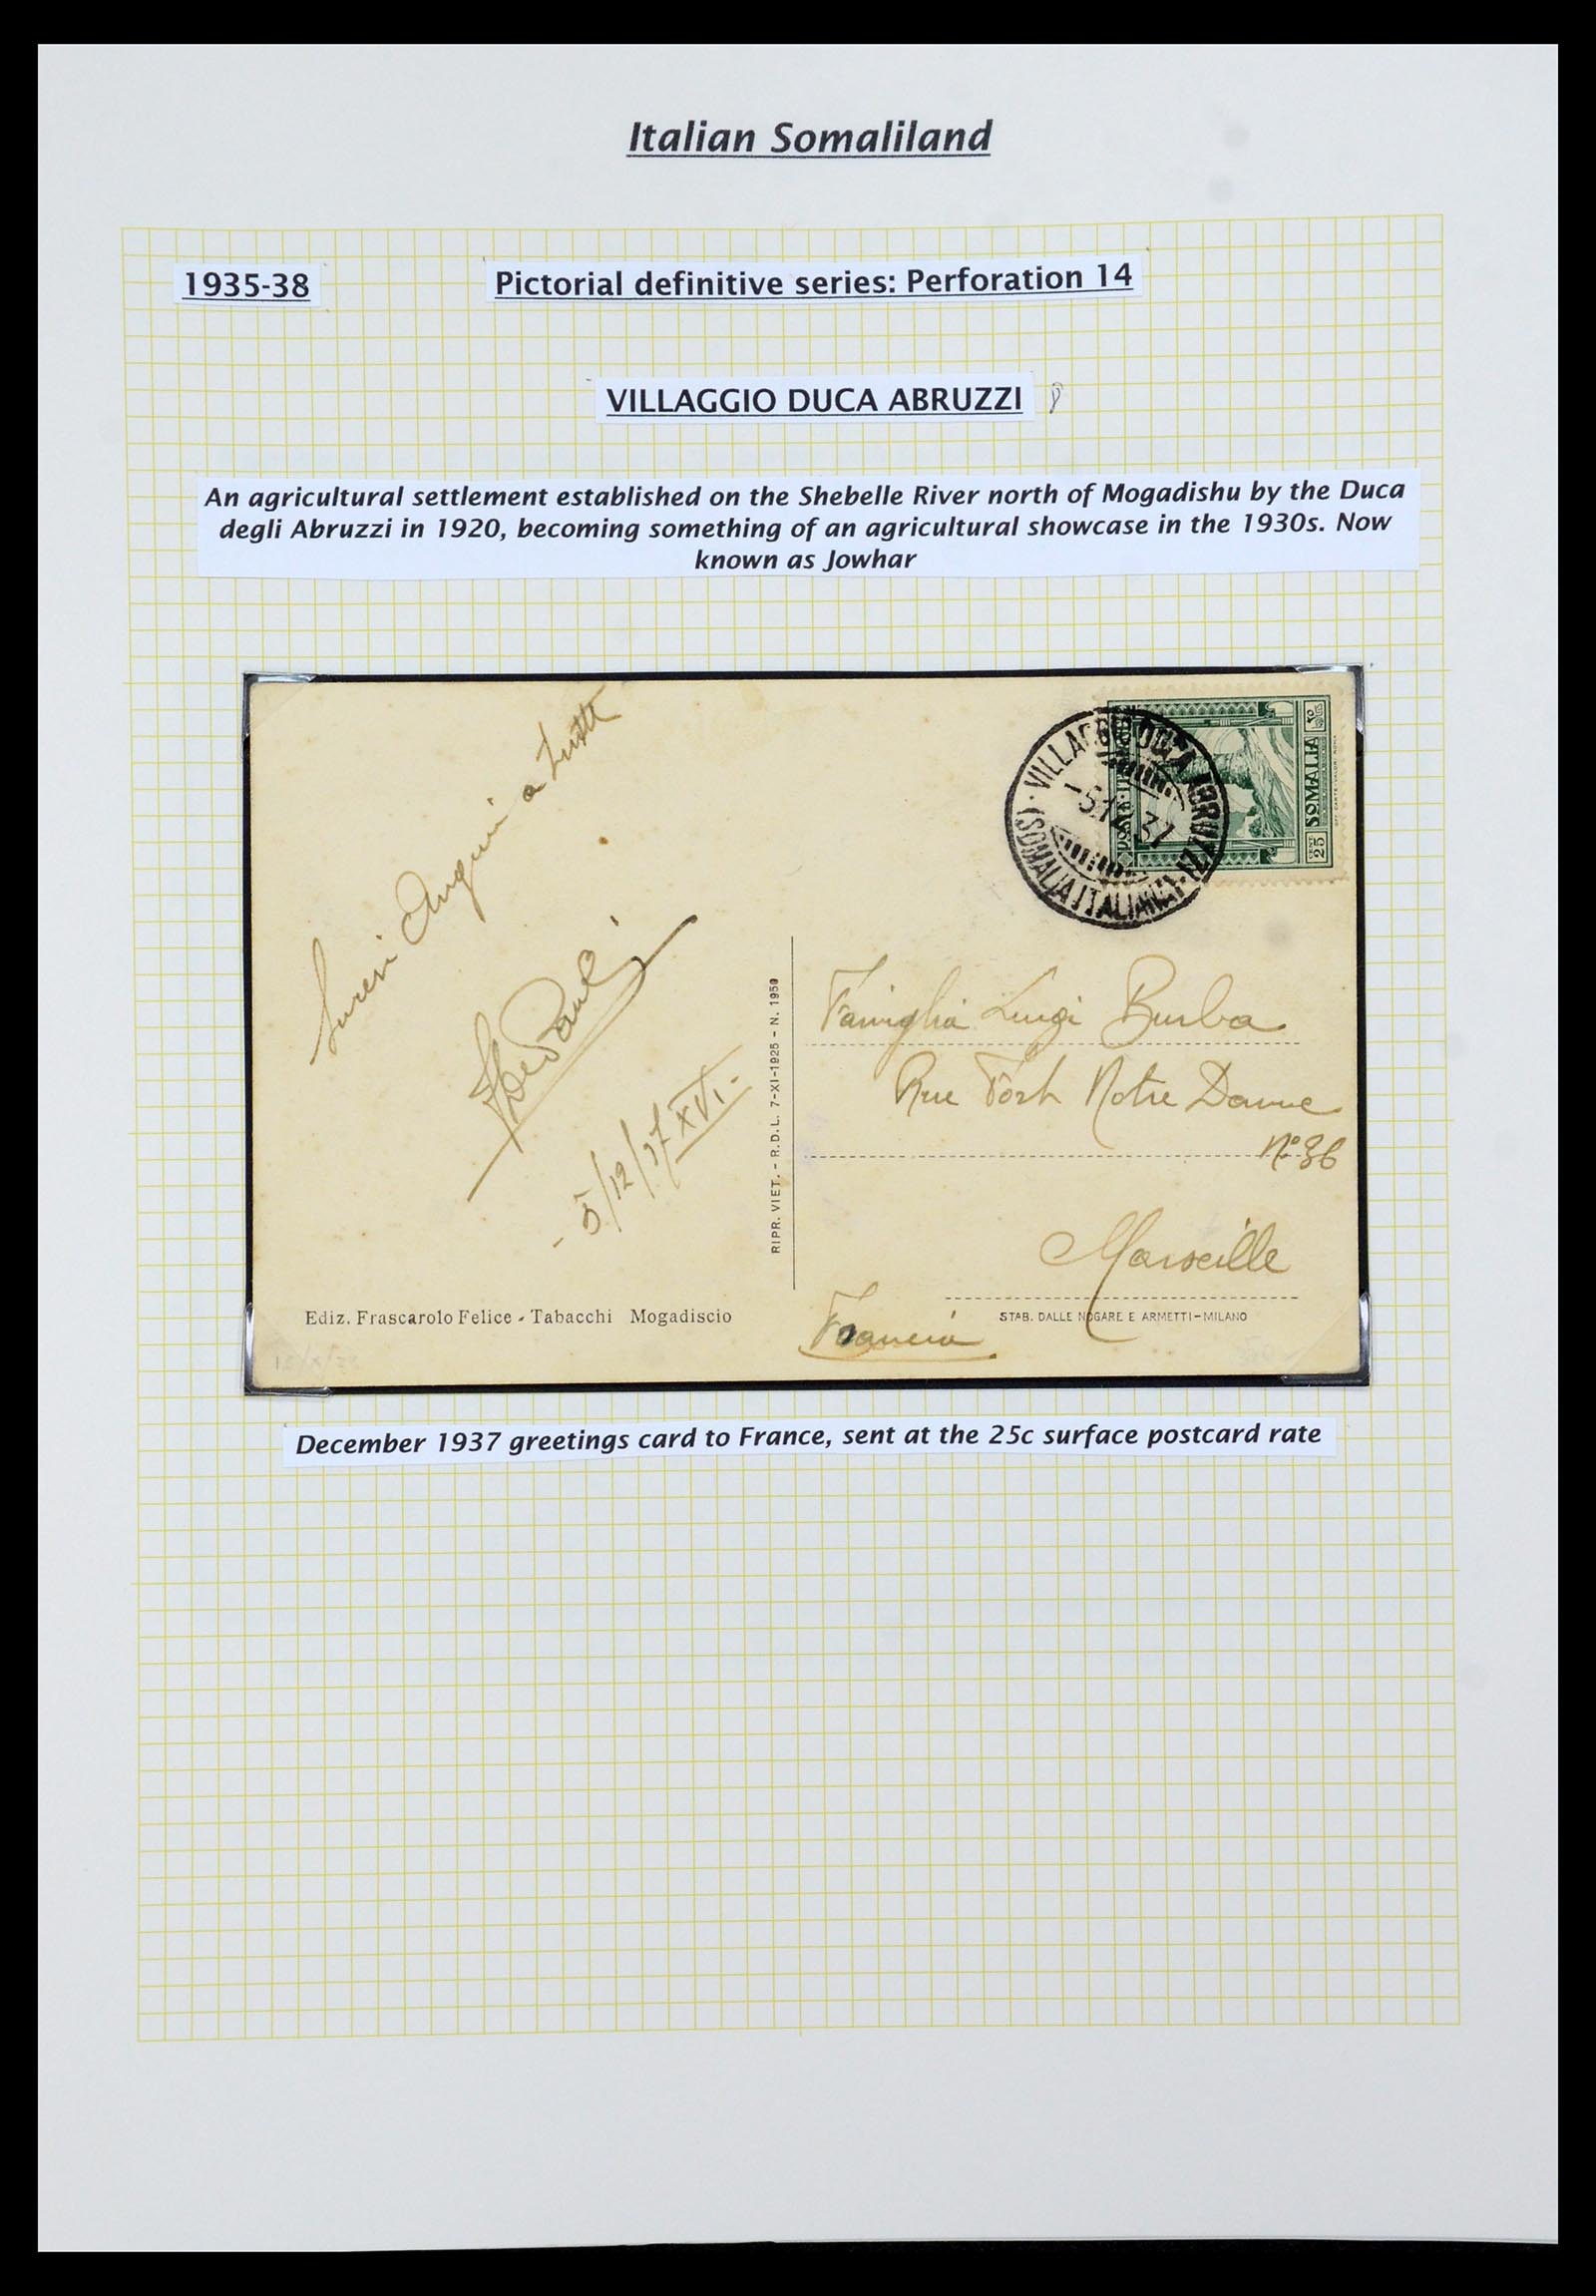 Italian Somaliland
1935-38
Pictorial definitive series: Perforation 14
VILLAGGIO DUCA ABRUZZI
An agricultural settlement established on the Shebelle River north of Mogadishu by the Duca
degli Abruzzi in 1920, becoming something of an agricultural showcase in the 1930s. Now
known as Jowhar
Auguri a tutti
5/12/37 XVI-
Ediz. Frascarolo Felice - Tabacchi Mogadiscio
RIPR. VIET. - R.D.L. 7-XI-1925 - N. 1950
POSTE
SOMALIA
CENT 25
VILLAGGIO DUCA ABRUZZI
-5.12.37
(SOMALIA ITALIANA)
Famiglia Luigi Burba
Rue Notre Dame
Nº 36
Marseille
Francia
STAB. DALLE NOGARE E ARMETTI-MILANO
December 1937 greetings card to France, sent at the 25c surface postcard rate